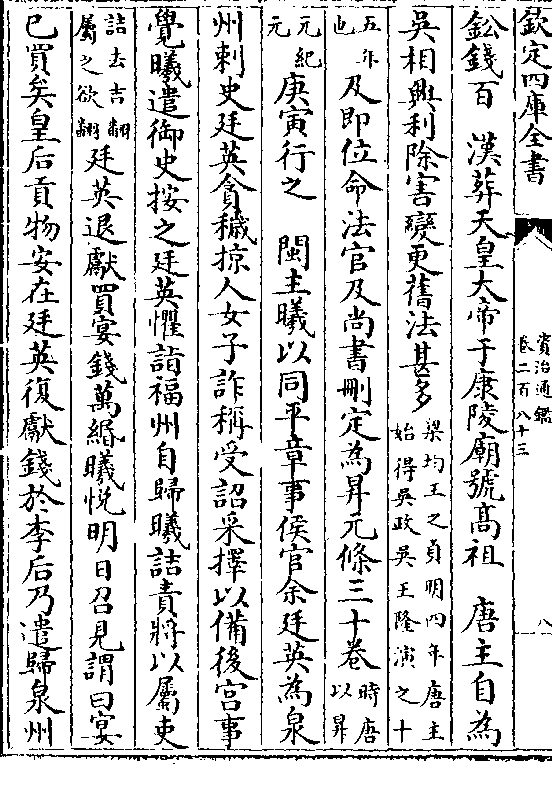 欽定四庫全書
資治通鑑
卷二百八十三
八
鈆錢百　漢葬天皇大帝于康陵廟號高祖　唐主自為
吳相興利除害變更舊法甚多梁均王之貞明四年唐主始得吳政吳王隆演之十
五年也及即位命法官及尚書刪定為昇元條三十卷時唐以昇
元紀元庚寅行之　閩主曦以同平章事侯官余廷英為泉
州刺史廷英貪穢掠人女子詐稱受詔采擇以備後宮事
覺曦遣御史按之廷英懼詣福州自歸曦詰責將以屬吏
詰去吉翻屬之欲翻廷英退獻買宴錢萬緡曦悅明日召見謂曰宴
已買矣皇后貢物安在廷英復獻錢於李后乃遣歸泉州